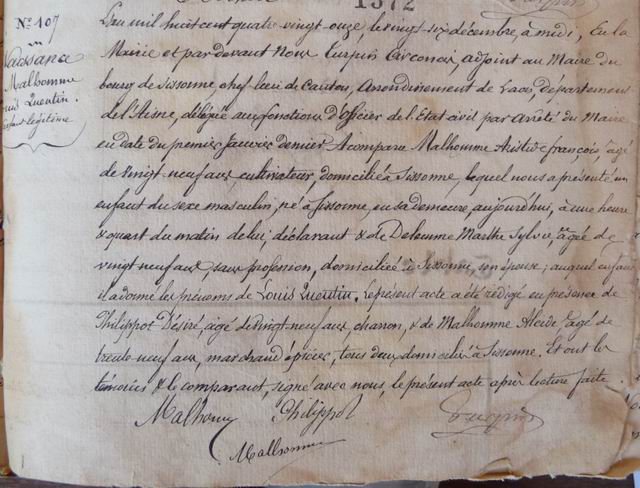 1372
N° 107
Naissance
Malhomme
Louis Quentin.
enfant légitime
L'an mil huit cent quatre vingt onze le vingt six décembre, à midi, En la
Mairie et par devant Nous Turpin Circoncis, adjoint au Maire du
bourg de Sissonne, chef lieu de Canton, Arrondissement de Laon, département
de l'Aisne, délégué aux fonctions d'Officier de l'Etat civil par Arrêté du Maire
en date du premier Janvier dernier A comparu Malhomme Aristide françois, âgé
de vingt-neuf ans, cultivateur, domicilié à Sissonne, lequel nous a présenté un
enfant du sexe masculin, né à Sissonne, en sa demeure, aujourd'hui, à une heure
& quart du matin de lui, déclarant & de Delhomme Marthe Sylvie âgée de
vingt neuf ans, sans profession, domiciliée à Sissonne, son épouse; auquel enfant
il a donné les prénoms de Louis Quentin. Le présent acte a été rédigé en présence de
Philippot Désiré, âgé de vingt-neuf ans charron, & de Malhomme Alcide, âgé de
trente-neuf ans, marchand épicier, tous deux domiciliés à Sissonne. Et ont les
témoins & le comparant, signé avec nous, le présent acte après lecture faite.
Malhomme Philippot Turpin
Malhomme